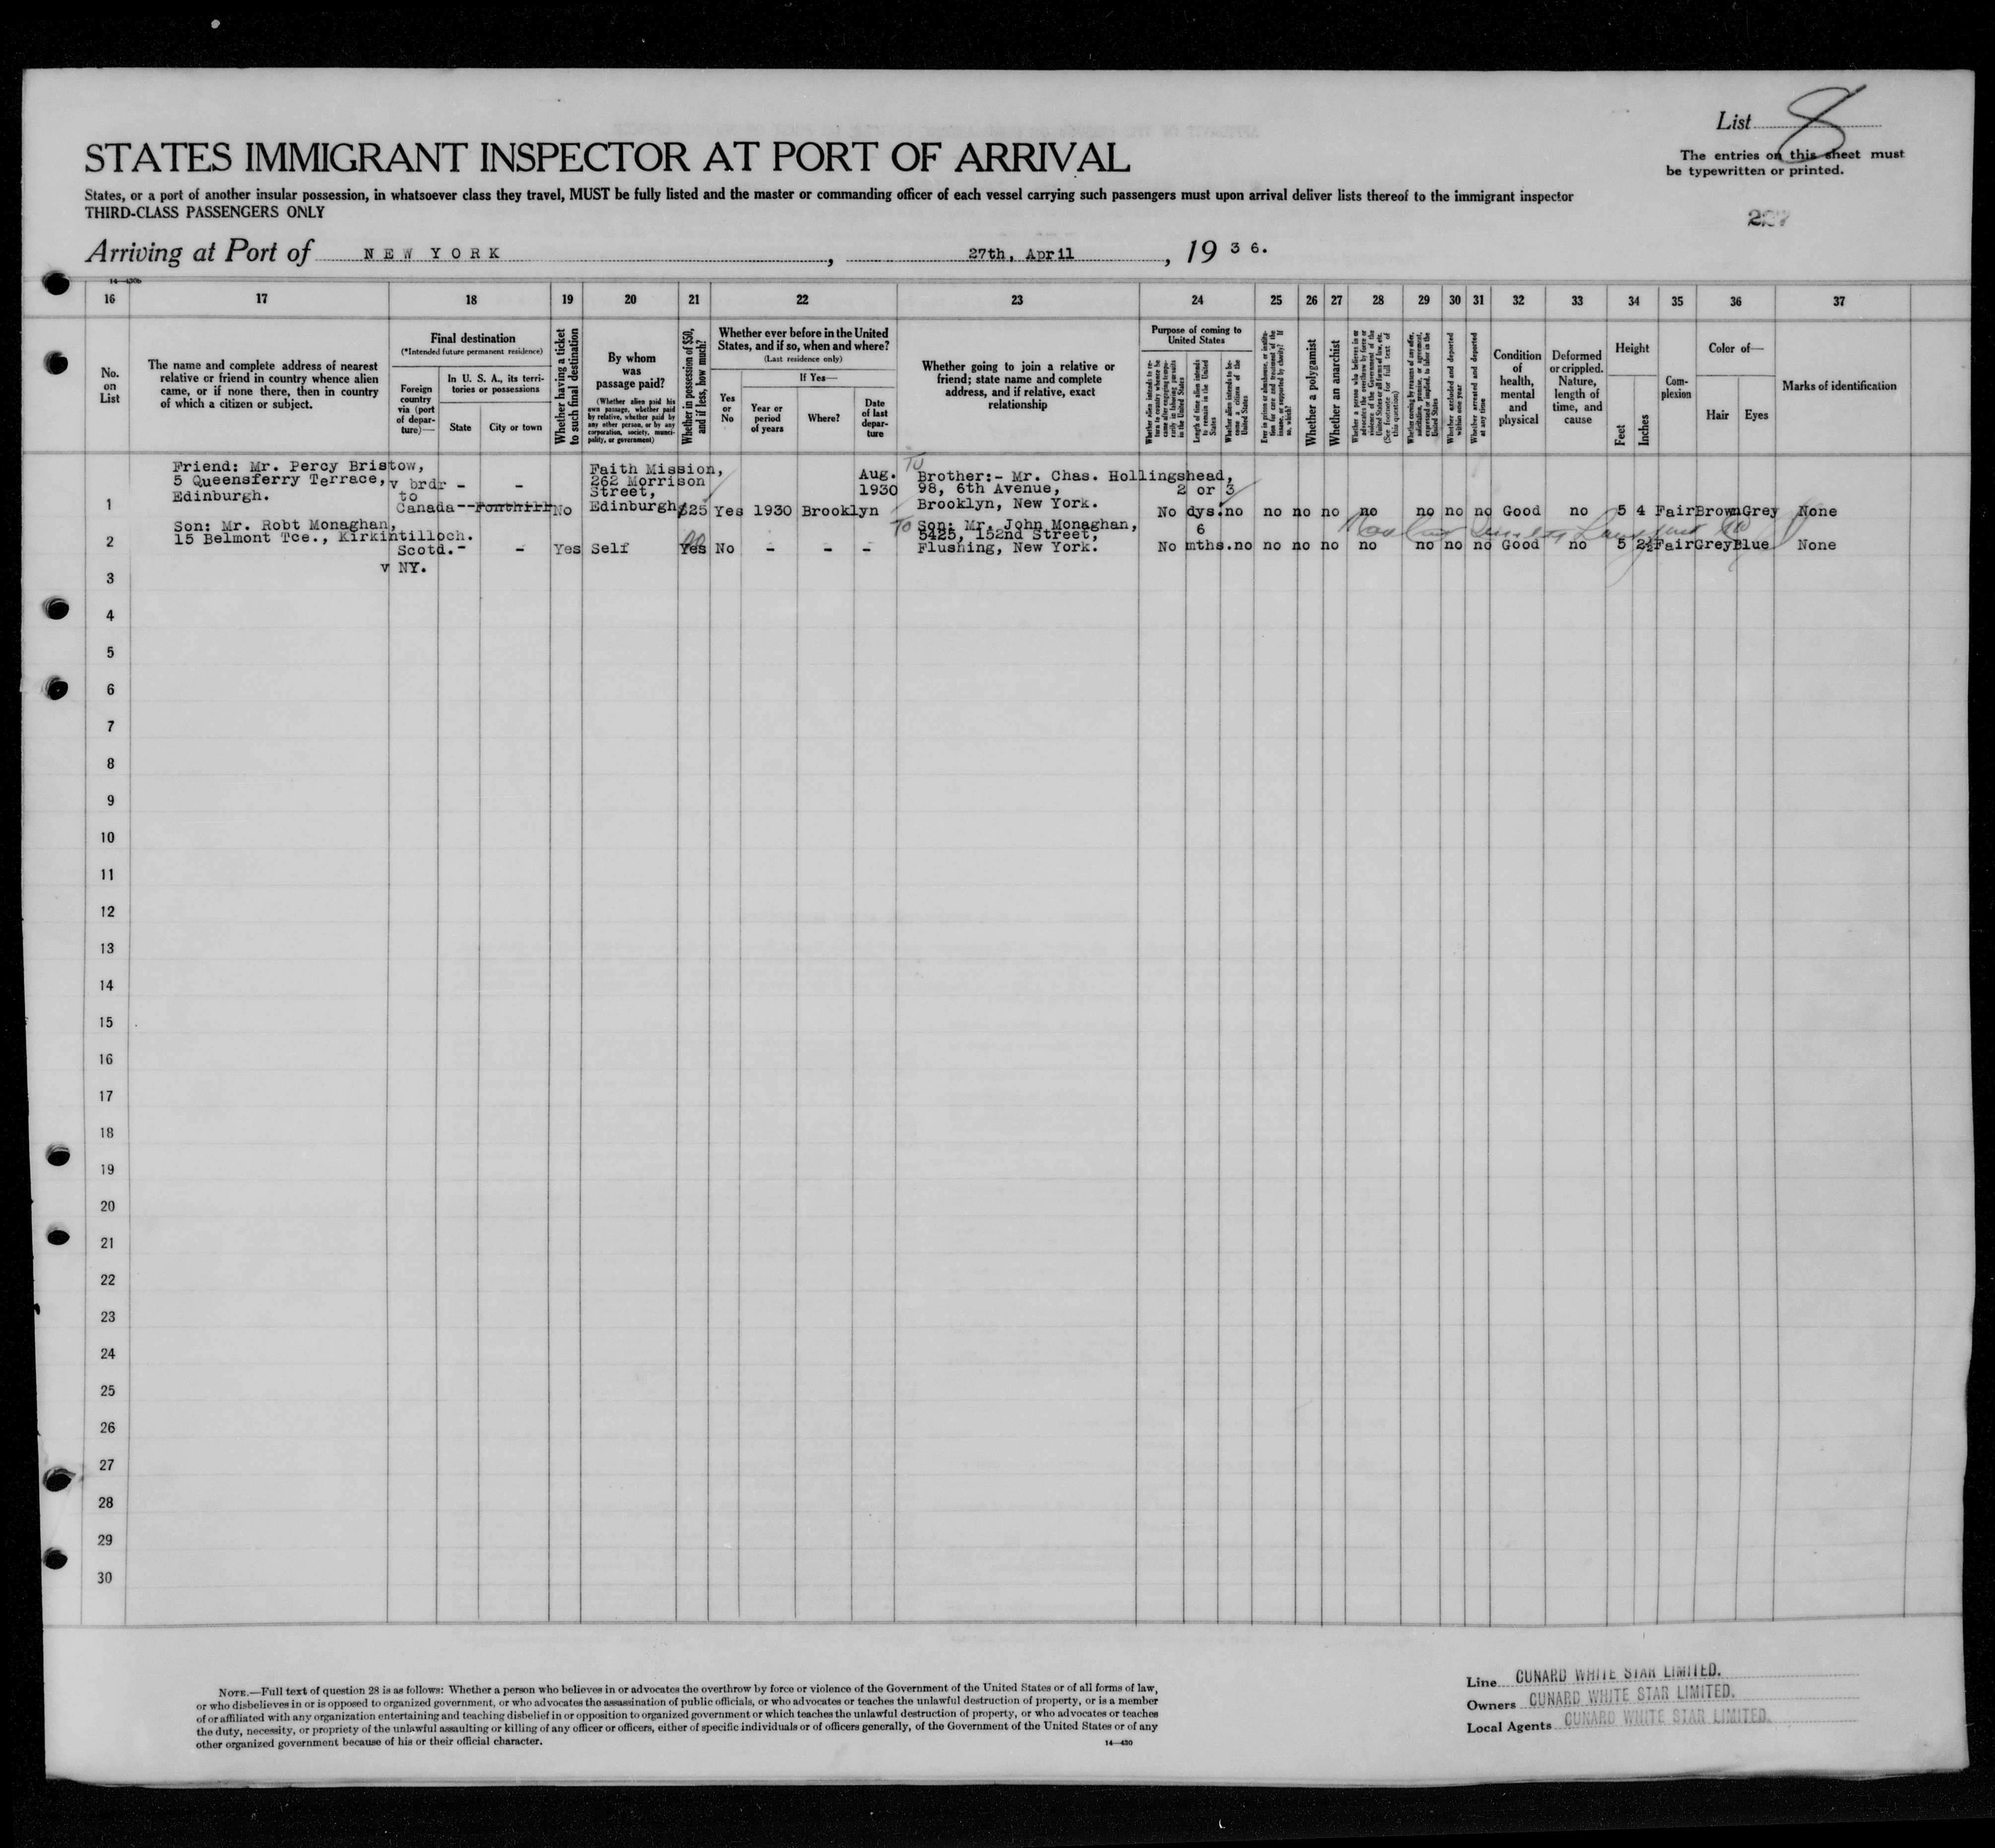 List 8
The entries on this sheet must
be typewritten or printed.
STATES IMMIGRANT INSPECTOR AT PORT OF ARRIVAL
States, or a port of another insular possession, in whatsoever class they travel, MUST be fully listed and the master or commanding officer of each vessel carrying such passengers must upon arrival deliver lists thereof to the immigrant inspector
THIRD-CLASS PASSENGERS ONLY
Arriving at Port of NEW YORK, 27th, April, 1936.
14—430b
16 17 18 19 20 21 22 23 24 25 26 27 28 29 30 31 32 33 34 35 36 37
No.
on
List
The name and complete address of nearest
relative or friend in country whence alien
came, or if none there, then in country
of which a citizen or subject.
Final destination
(*Intended future permanent residence)
Foreign
country
via (port
of depar-
ture)—
In U. S. A., its terri-
tories or possessions
State
City or town
Whether having a ticket
to such final destination
By whom
was
passage paid?
(Whether alien paid his
own passage, whether paid
by relative, whether paid by
any other person, or by any
corporation, society, munici-
pality, or government)
Whether in possession of $50,
and if less, how much?
Whether ever before in the United
States, and if so, when and where?
(Last residence only)
Yes
or
No
If Yes—
Year or
period
of years
Where?
Date
of last
depar-
ture
Whether going to join a relative or
friend; state name and complete
address, and if relative, exact
relationship
Purpose of coming to
United States
Whether alien intends to re-
turn to country whence he
came after engaging tempo-
rarily in laboring pursuits
in the United States
Length of time alien intends
to remain in the United
States
Whether alien intends to be-
come a citizen of the
United States
Ever in prison or almshouse, or institu-
tion for care and treatment of the
insane, or supported by charity? If
so, which?
Whether a polygamist
Whether an anarchist
Whether a person who believes in or
advocates the overthrow by force or
violence of the Government of the
United States or all forms of law, etc.
(See footnote for full text of
this question)
Whether coming by reasons of any offer,
solicitation, promise, or agreement,
expressed or implied, to labor in the
United States
Whether excluded and deported
within one year
Whether arrested and deported
at any time
Condition
of
health,
mental
and
physical
Deformed
or crippled.
Nature,
length of
time, and
cause
Height
Feet
Inches
Com-
plexion
Color of—
Hair
Eyes
Marks of identification
1
Friend: Mr. Percy Bristow,
5 Queensferry Terrace,
Edinburgh.
v brdr - -
to
Canada--Fonthill
No
Faith Mission,
262 Morrison
Street,
Edinburgh
$25 Yes 1930 Brooklyn
Aug.
1930
TO
Brother:- Mr. Chas. Hollingshead,
98, 6th Avenue,
Brooklyn, New York.
No
2 or 3
dys. no no no no no no no no Good no 5 4 Fair Brown Grey None
2
Son: Mr. Robt Monaghan,
15 Belmont Tce., Kirkintilloch.
Scotd.- -
v NY.
Yes Self Yes No - - -
TO
Son: Mr. John Monaghan,
5425, 152nd Street,
Flushing, New York.
No
6
mths. no no no no no no no no Good no 5 2½ Fair Grey Blue None
3
4
5
6
7
8
9
10
11
12
13
14
15
16
17
18
19
20
21
22
23
24
25
26
27
28
29
30
NOTE.—Full text of question 28 is as follows: Whether a person who believes in or advocates the overthrow by force or violence of the Government of the United States or of all forms of law,
or who disbelieves in or is opposed to organized government, or who advocates the assassination of public officials, or who advocates or teaches the unlawful destruction of property, or is a member
of or affiliated with any organization entertaining and teaching disbelief in or opposition to organized government or which teaches the unlawful destruction of property, or who advocates or teaches
the duty, necessity, or propriety of the unlawful assaulting or killing of any officer or officers, either of specific individuals or of officers generally, of the Government of the United States or of any
other organized government because of his or their official character.
14—430
Line CUNARD WHITE STAR LIMITED.
Owners CUNARD WHITE STAR LIMITED.
Local Agents CUNARD WHITE STAR LIMITED.